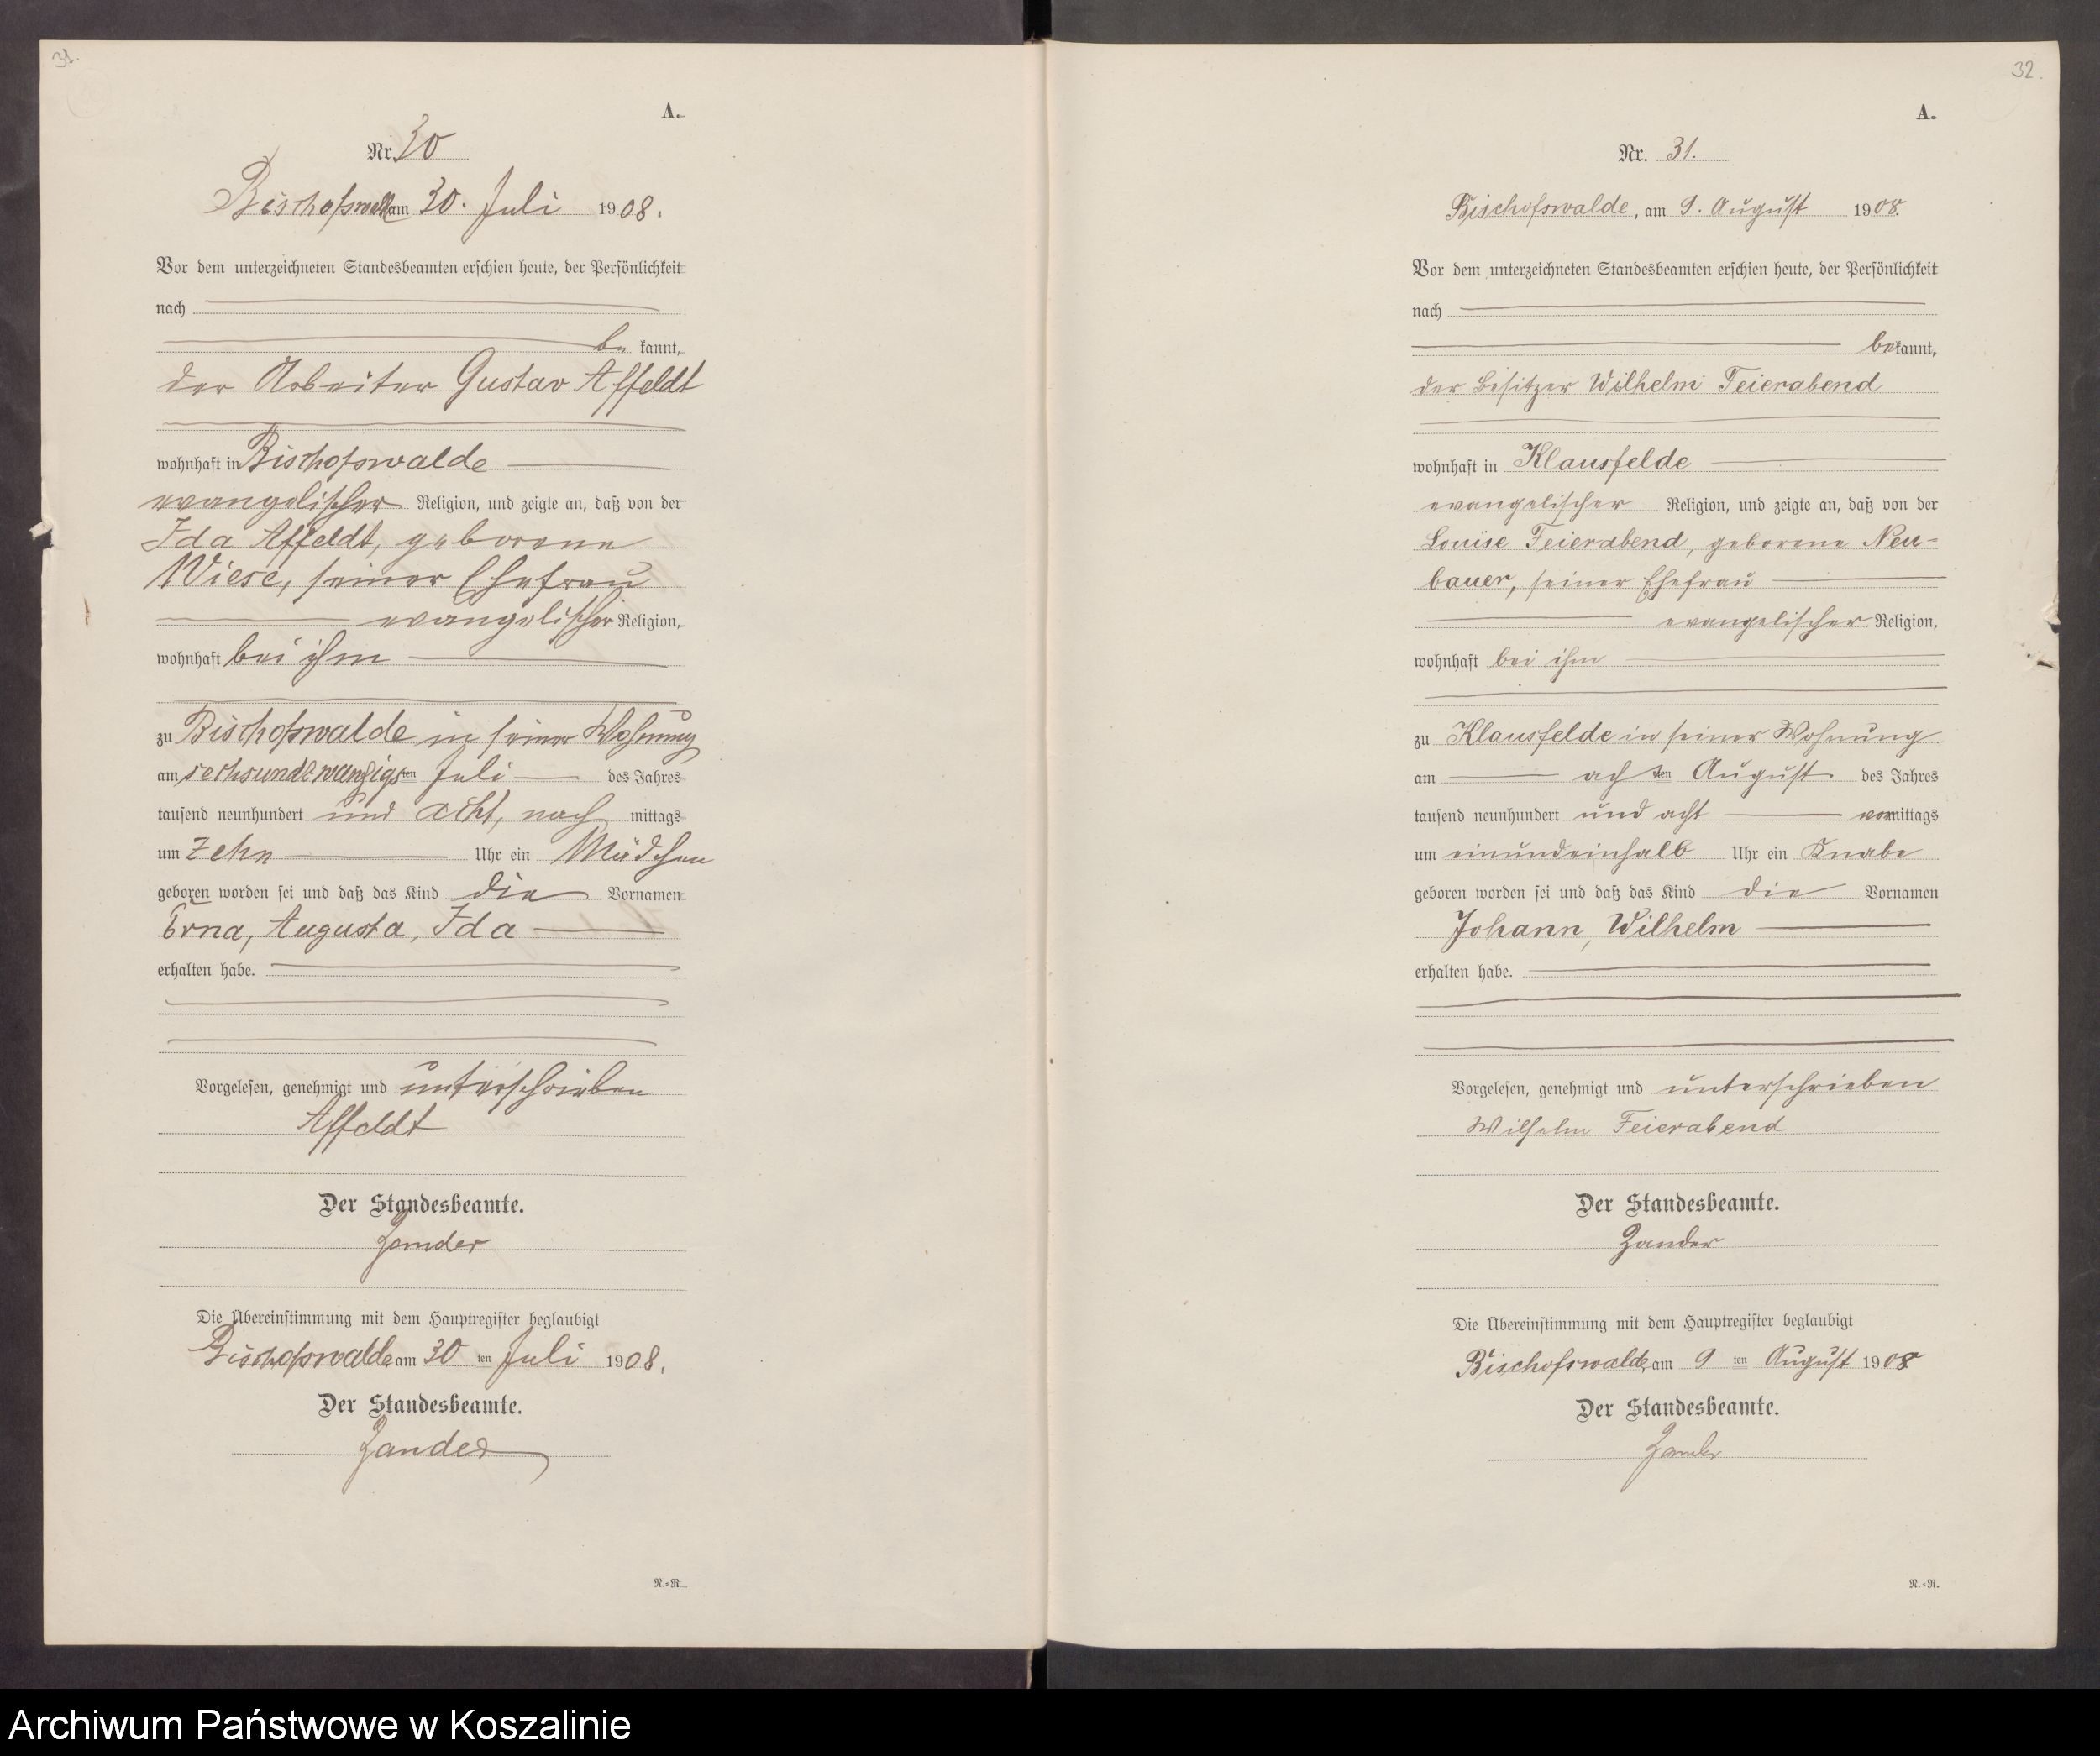 31.
A.
Nr. 30
Bischofswalde am 30. Juli 1908.
Vor dem unterzeichneten Standesbeamten erschien heute, der Persönlichkeit
nach
be kannt,
der Arbeiter Gustav Affeldt
wohnhaft in Bischofswalde
evangelischer Religion, und zeigte an, daß von der
Ida Affeldt, geborene
Wiese, seiner Ehefrau
evangelischer Religion,
wohnhaft bei ihm
zu Bischofswalde in seiner Wohnung
am sechsundzwanzigsten Juli des Jahres
tausend neunhundert und acht, nach mittags
um zehn Uhr ein Mädchen
geboren worden sei und daß das Kind die Vornamen
Erna, Augusta, Ida
erhalten habe.
Vorgelesen, genehmigt und unterschrieben
Affeldt
Der Standesbeamte.
Zander
Die Übereinstimmung mit dem Hauptregister beglaubigt
Bischofswalde am 30 ten Juli 1908.
Der Standesbeamte.
Zander
N.=R.
32.
A.
Nr. 31.
Bischofswalde, am 9. August 1908.
Vor dem unterzeichneten Standesbeamten erschien heute, der Persönlichkeit
nach
bekannt,
der Besitzer Wilhelm Feierabend
wohnhaft in Klausfelde
evangelischer Religion, und zeigte an, daß von der
Louise Feierabend, geborene Neu-
bauer, seiner Ehefrau
evangelischer Religion,
wohnhaft bei ihm
zu Klausfelde in seiner Wohnung
am achten August des Jahres
tausend neunhundert und acht vormittags
um einundeinhalb Uhr ein Knabe
geboren worden sei und daß das Kind die Vornamen
Johann, Wilhelm
erhalten habe.
Vorgelesen, genehmigt und unterschrieben
Wilhelm Feierabend
Der Standesbeamte.
Zander
Die Übereinstimmung mit dem Hauptregister beglaubigt
Bischofswalde, am 9 ten August 1908
Der Standesbeamte.
Zander
N.=R.
Archiwum Państwowe w Koszalinie